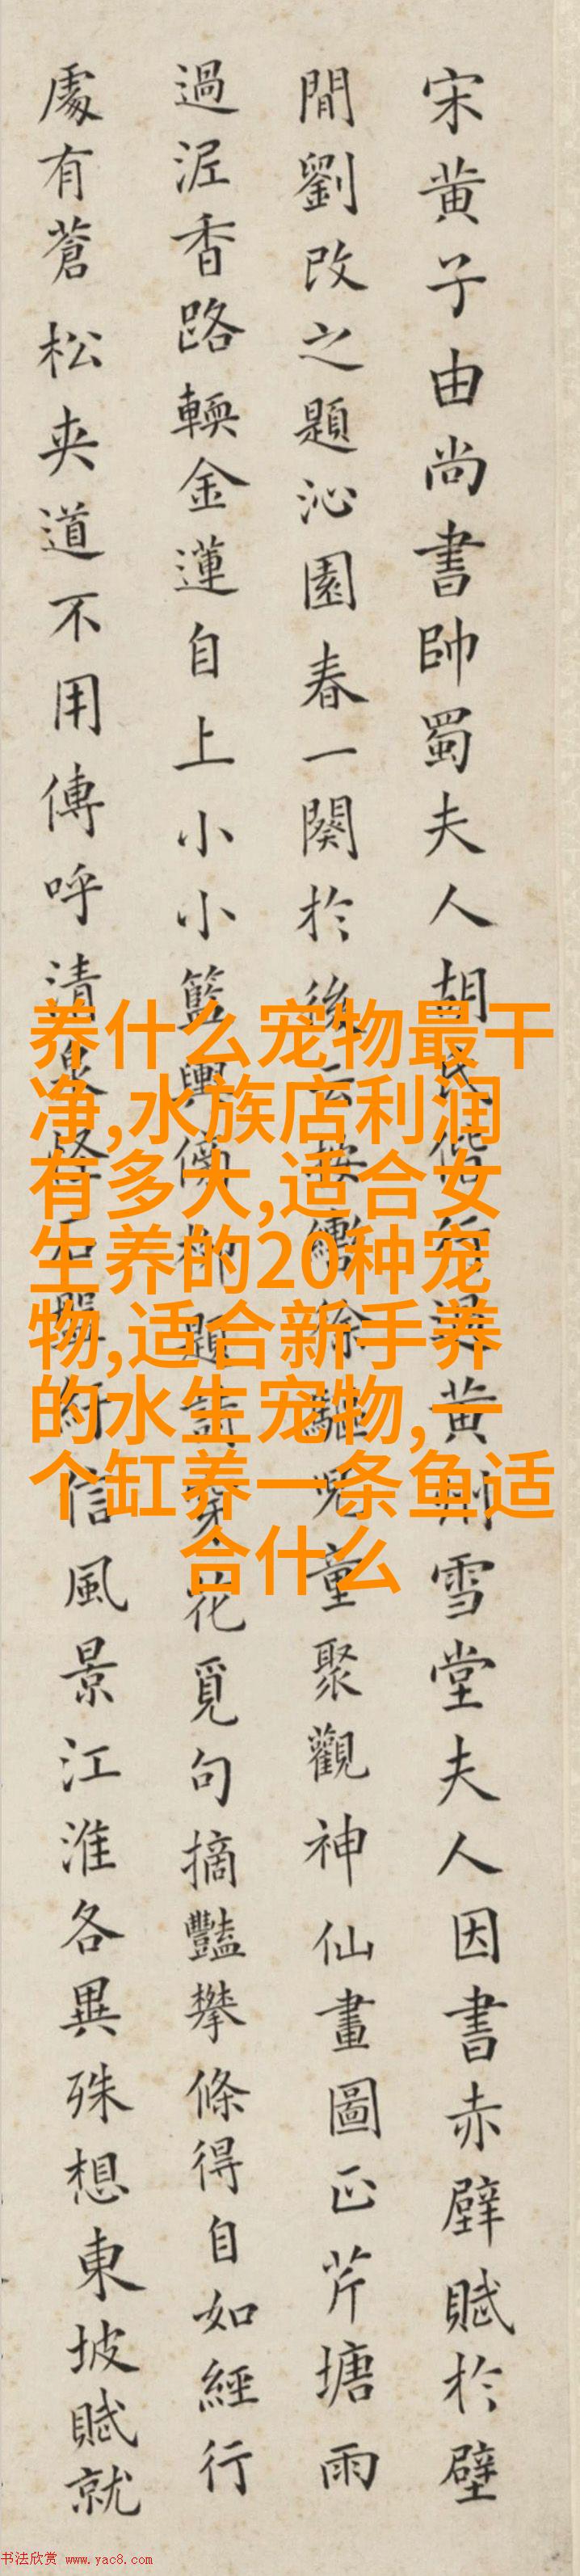 宋黄子由尚書帥蜀夫人胡氏偕行過黄州雪堂夫人因書赤壁賦於壁
間劉改之題沁園春一闋於後云按轡徐驅兒童聚觀神仙畫圖正芹塘雨
過泥香路輭金蓮自上小小籃輿傍柳題詩穿花覓句摘豔攀條得自如經行
處有蒼松夾道不用傳呼清泉怪石盤紆信風景江淮各異殊想東坡賦就
养什么宠物最干
净,水族店利润
有多大,适合女
生养的20种宠
物,适合新手养
的水生宠物,一
个缸养一条鱼适
合什么
书法欣赏 www.yac8.com